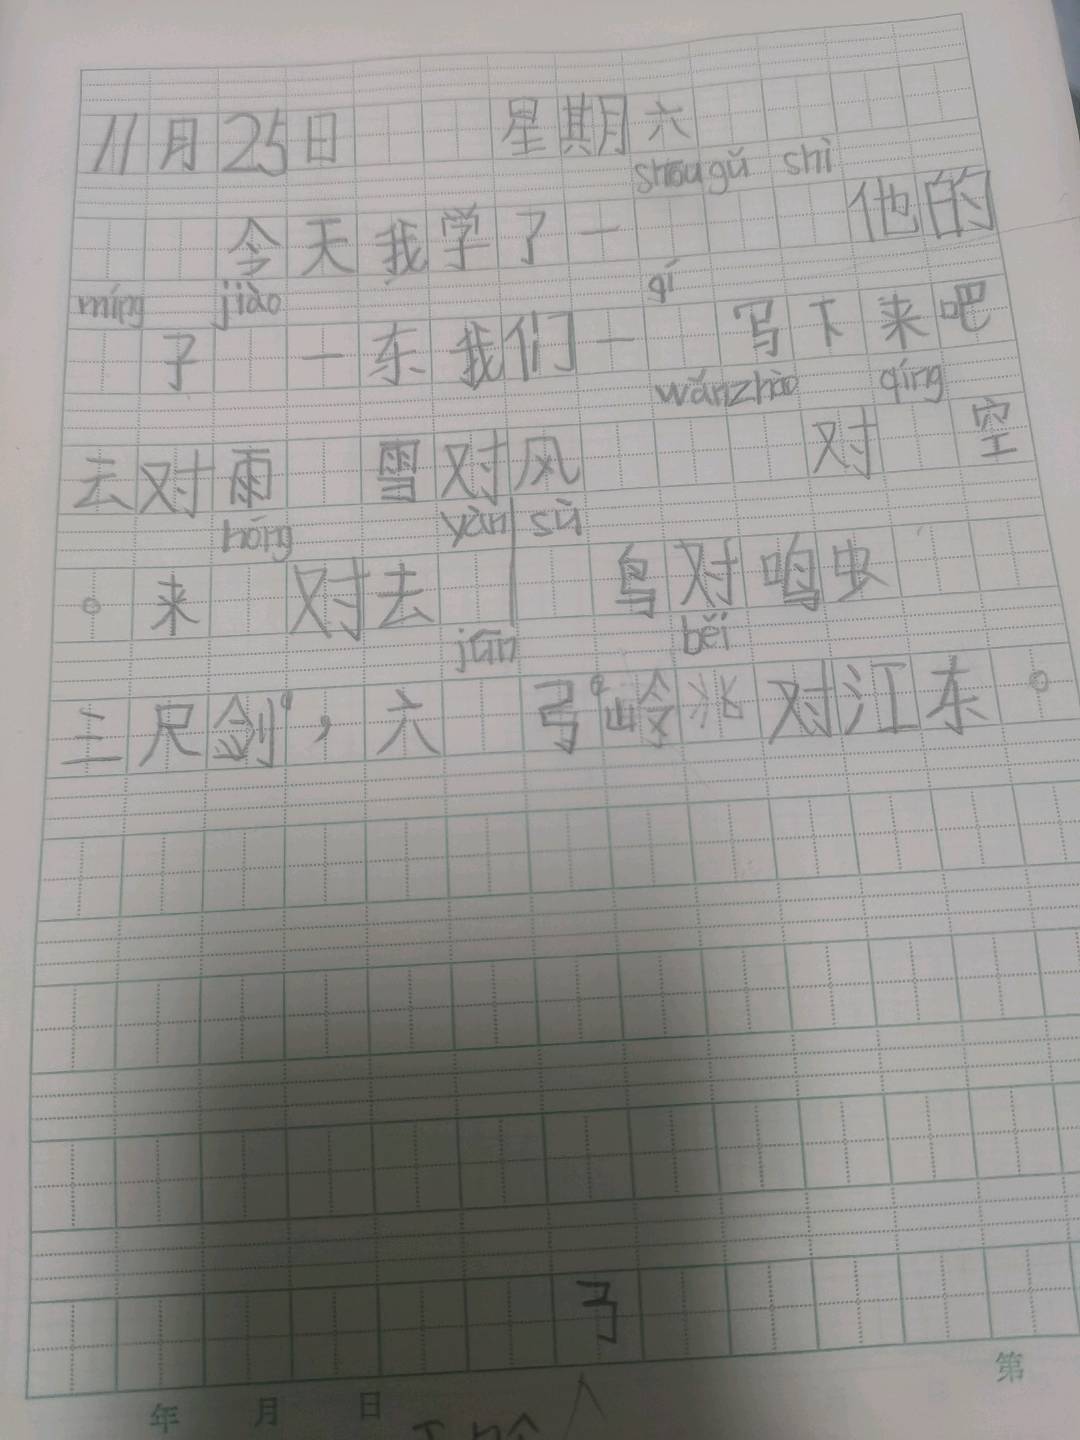 11月25日 星期六
shǒu gǔ shī
今天我学了一 他的
míng jiào qí
子 一东我们一 写下来吧
wǎn zhào qíng
去对雨 雪对风 对 空
hóng yàn sù
。来 对去 鸟对鸣虫
jūn běi
三尺剑，六 弓岭北对江东。
弓
年 月 日 第